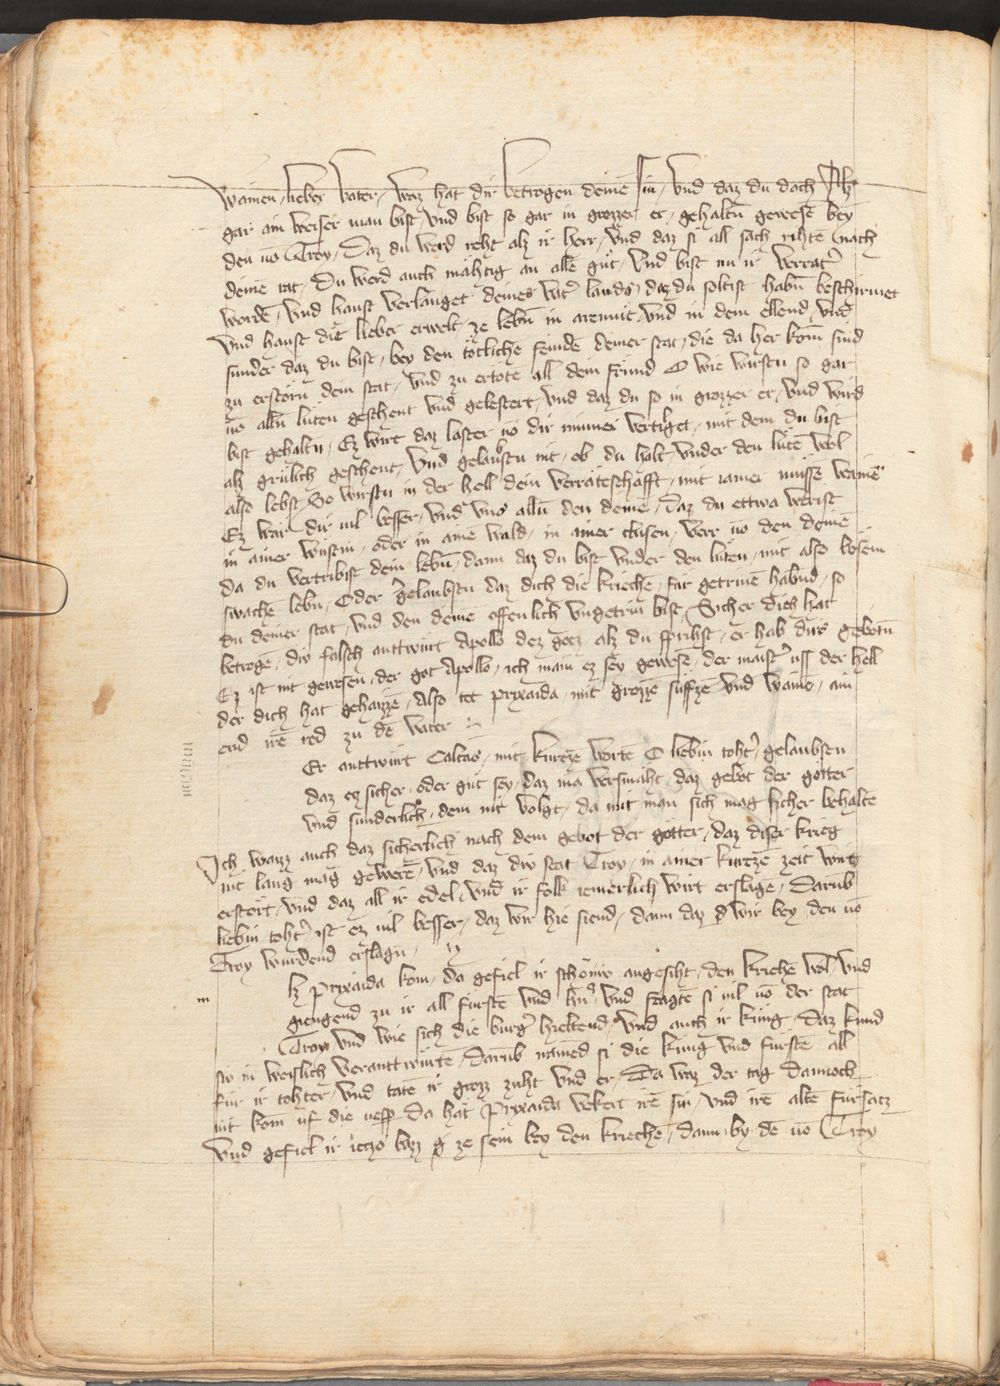 wainen / lieber Vater / waz hat dir betrogen deinē sin / Vnd daz du doch Alz
gar ain weiser man bist / vnd bist so gar in grozzer er / gehaltn̄ gewesē bey
den uō Troy / Daz du werd reht alz ir herr / vnd daz si all sach rihtē nach
deinē rat / Du werd auch mähtig an allē gůt / Vnd bist nu ir Verrät̾
wordē / Vnd haust Verlānget deines Vat̾ lands / daz du soltist habn̄ beschirmet
Vnd haust die lieber erwelt / ze lebn̄ in armut / vnd in dem ellend vnd
sunder daz du bist / bey den tötlichē feindē deiner stat / die da her kom̄ sind
zu erstörn dein stat / Vnd zu ertotē all dein fründ O wie wirstu so gar
uō alln̄ lüten geschent vnd gelestert / Vnd daz du so in grozzer er / vnd wird
bist gehaltn / Ez wirt daz laster uō dir nimer Vertilget / mit dem du bist
alz grülich geschent / Vnd gelaubstu nit / ob du halt vnder den lütē wol
also lebst / So wirstu in der hell dein Verräteschäfft / mit iamer müssē wainē
Ez wär dir uil besser / vnd vns alln̄ den deinē / Daz du ettwa werist
in ainer wüstin / oder in amē wald / in ainer clusen / verr uō den deinē
da du Vertribist dein lebn̄ / dann daz du bist vnder den lüten / mit also bösem
swachē lebn / Oder gelaubstu daz dich die kriechē / für getriwē habnd / so
du deiner stat / vnd den deinē offenlich vngetriu bist / Sicher dich hat
betrogē / div falsch anttwurt Apollo dez gotz alz du sprihst / er hab dirs gebotn̄
Ez ist nit gewesen / der got Apollo / ich main ez sey gewesē / der maist̾ uss der hell
der dich hat gehaizzē / Also tet prixaida / mit grozzē süfzē vnd wainē / ain
end irē red zu dē Vater
Er anttwurt Calcas / mit kurtzē wortē O liebiu toht̾ / gelaubstu
daz ez sicher / oder gůt sey / daz ma versmäht / daz gebot der götter
vnd sunderlich / dem nit Volgt / da mit man sich mag sicher behaltē
Ich waizz auch daz sicherlich nach dem gebot der götter / daz diser krieg
nit lang mag gewerē / Vnd daz div stat Troy / in ainer kurtzē zeit wirt
erstört / Vnd daz all ir edel / vnd ir folk iemerlich wirt erslagē / Darūb
liebiu toht̾ / ist ez uil besser / daz wir hie siend / dann daz wir bey den uō
Troy wurdend erslagn̄ /
lz prixaida kom / da gefiel ir schöniv angesiht / den kriechē wol / Vnd
giengend zu ir all fürstē vnd hn̄ / Vnd fragtē si uil uō der stat
Troy vnd wie sich die burg̾ hieltend / Vnd auch ir küng / Daz kund
siv in weislich Veranttwürtē / Darūb namēd si die küng vnd fürstē all
für ir tohter / vnd tatē ir grozz zuht vnd er / Da waz der tag dannoch
nit kom̄ uf die uesp̄ / da hat prixaida vekert irē sin / vnd irē altē fürsatz
Vnd gefiel ir ietzo bazz ze sein bey den kriechē / dann by dē uō Troy